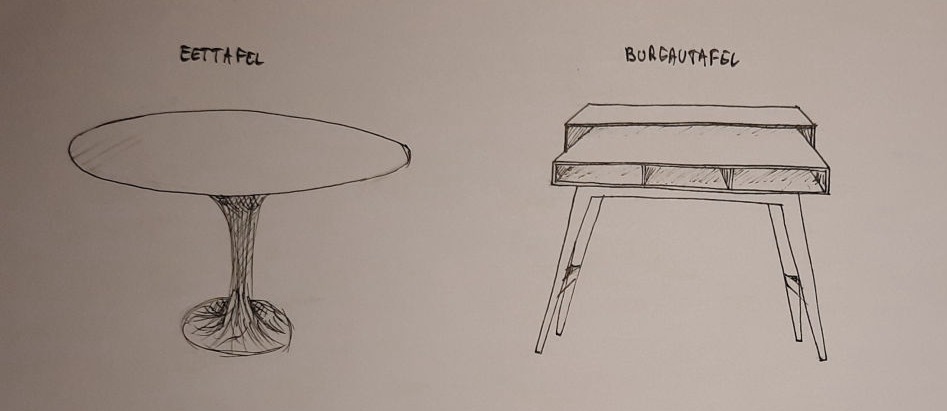 EETTAFEL
BUREAUTAFEL